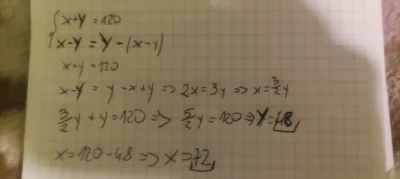 x+y = 120
x-y = y-(x-y)
x+y = 120
x-y = y-x+y => 2x=3y => x=3/2y
3/2y+y=120 => 5/2y=120 => y=48
x=120-48 => x=72